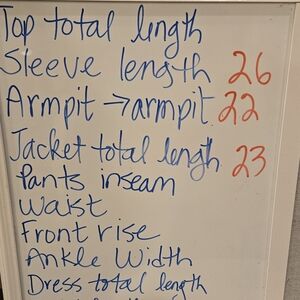 Top total length
Sleeve length 26
Armpit → armpit 22
Jacket total length 23
Pants inseam
Waist
Front rise
Ankle Width
Dress total length